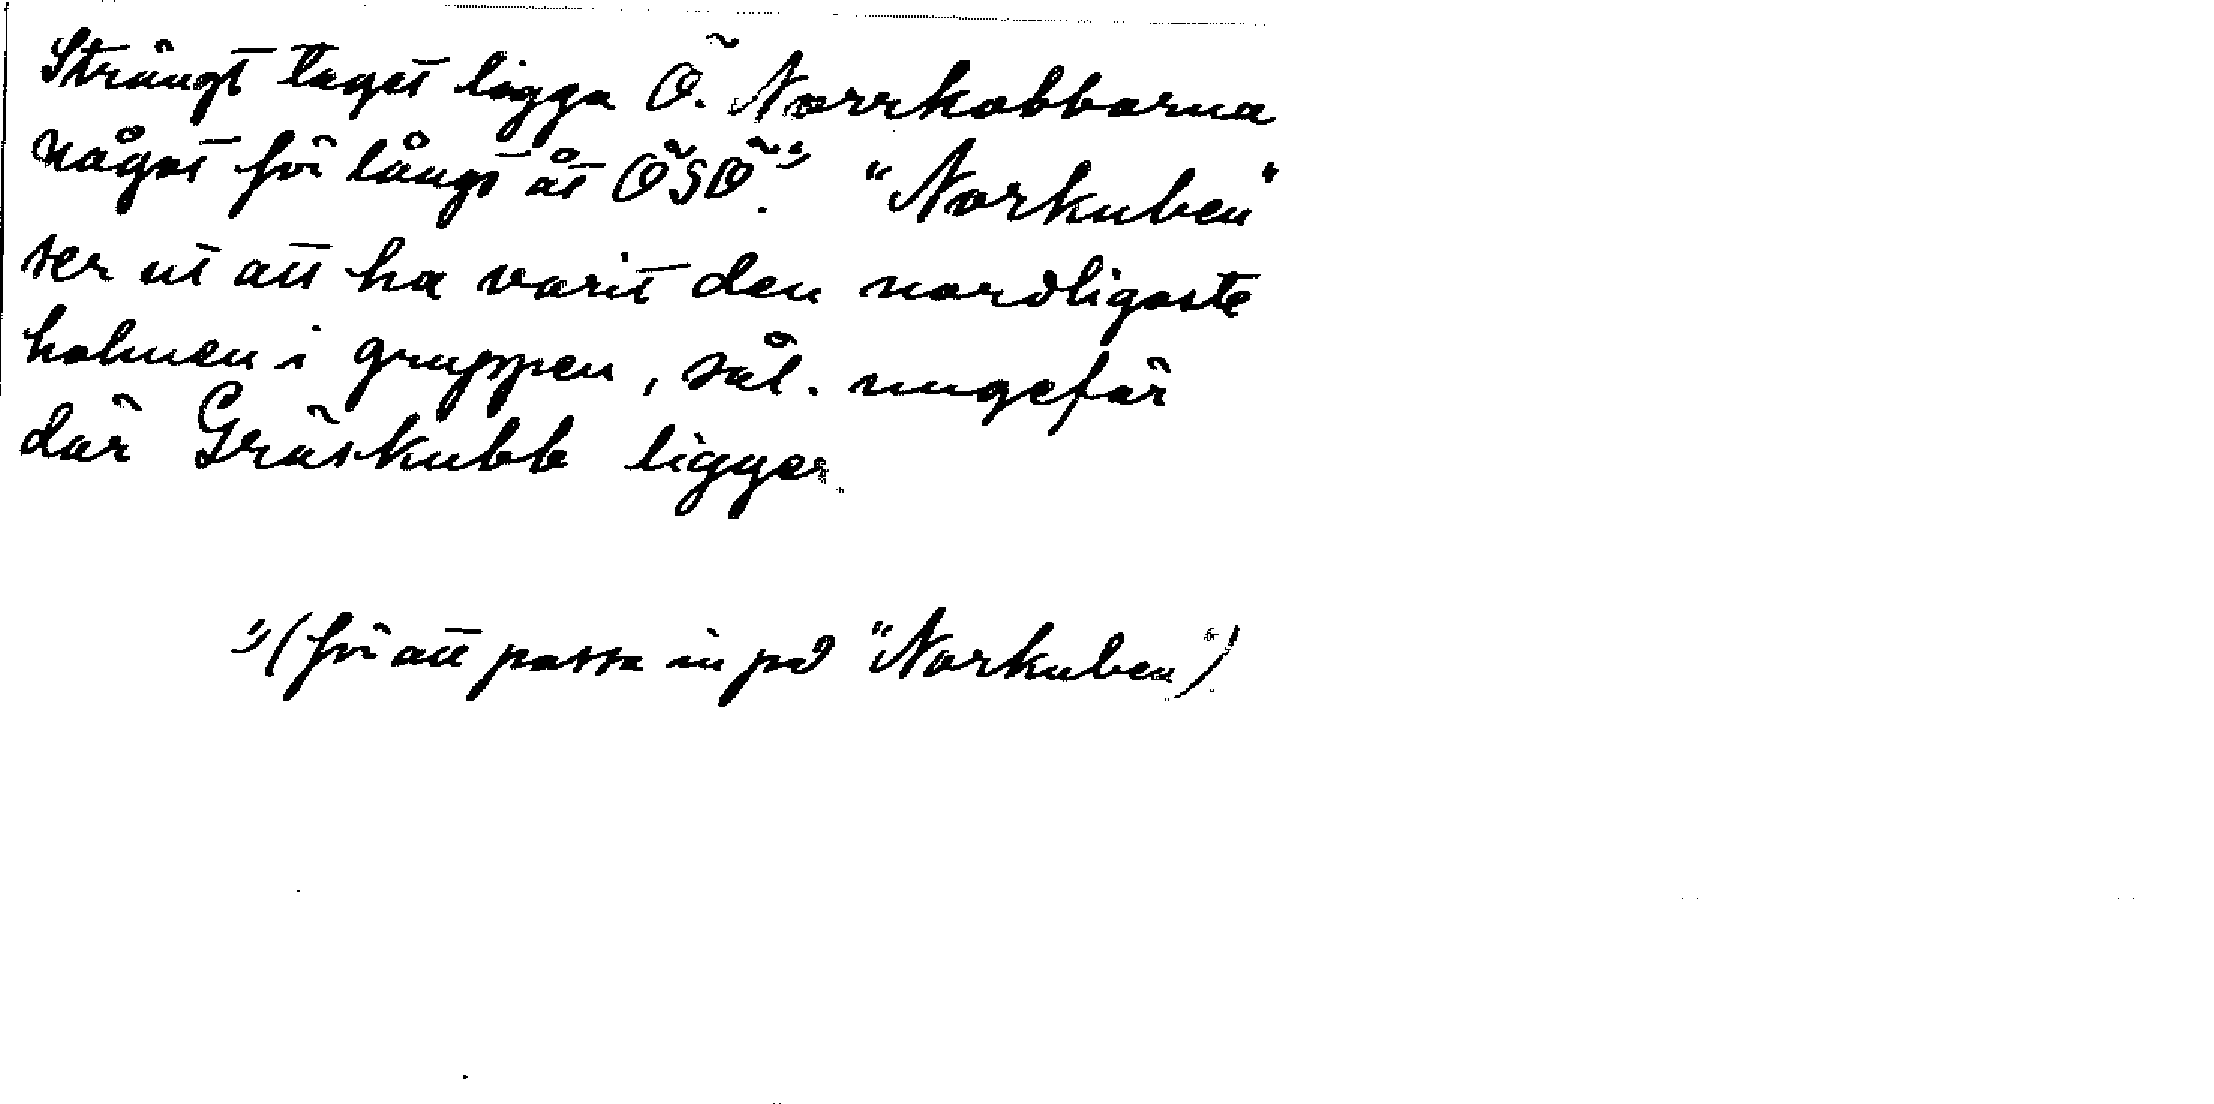 Strängt taget ligga Ö. Norrkobbarna
något för långt åt ÖSÖ.¹⁾ "Norkuben"
ser ut att ha varit den nordligaste
holmen i gruppen, sål. ungefär
där Gräskubb ligger.
¹⁾(för att passa in på "Norkuben")